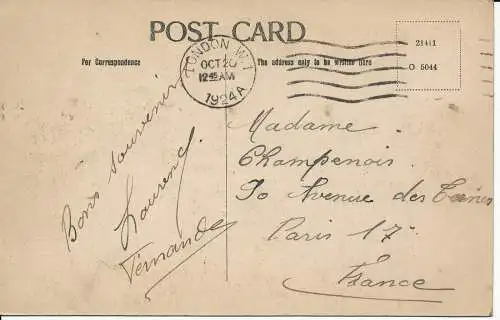 POST CARD
For Correspondence
The address only to be written here
LONDON W.1
OCT 20
12 45 AM
1924 A
21411
O 5044
Bons souvenirs
Fernande
Madame
Champenois
90 Avenue des Ternes
Paris 17e
France